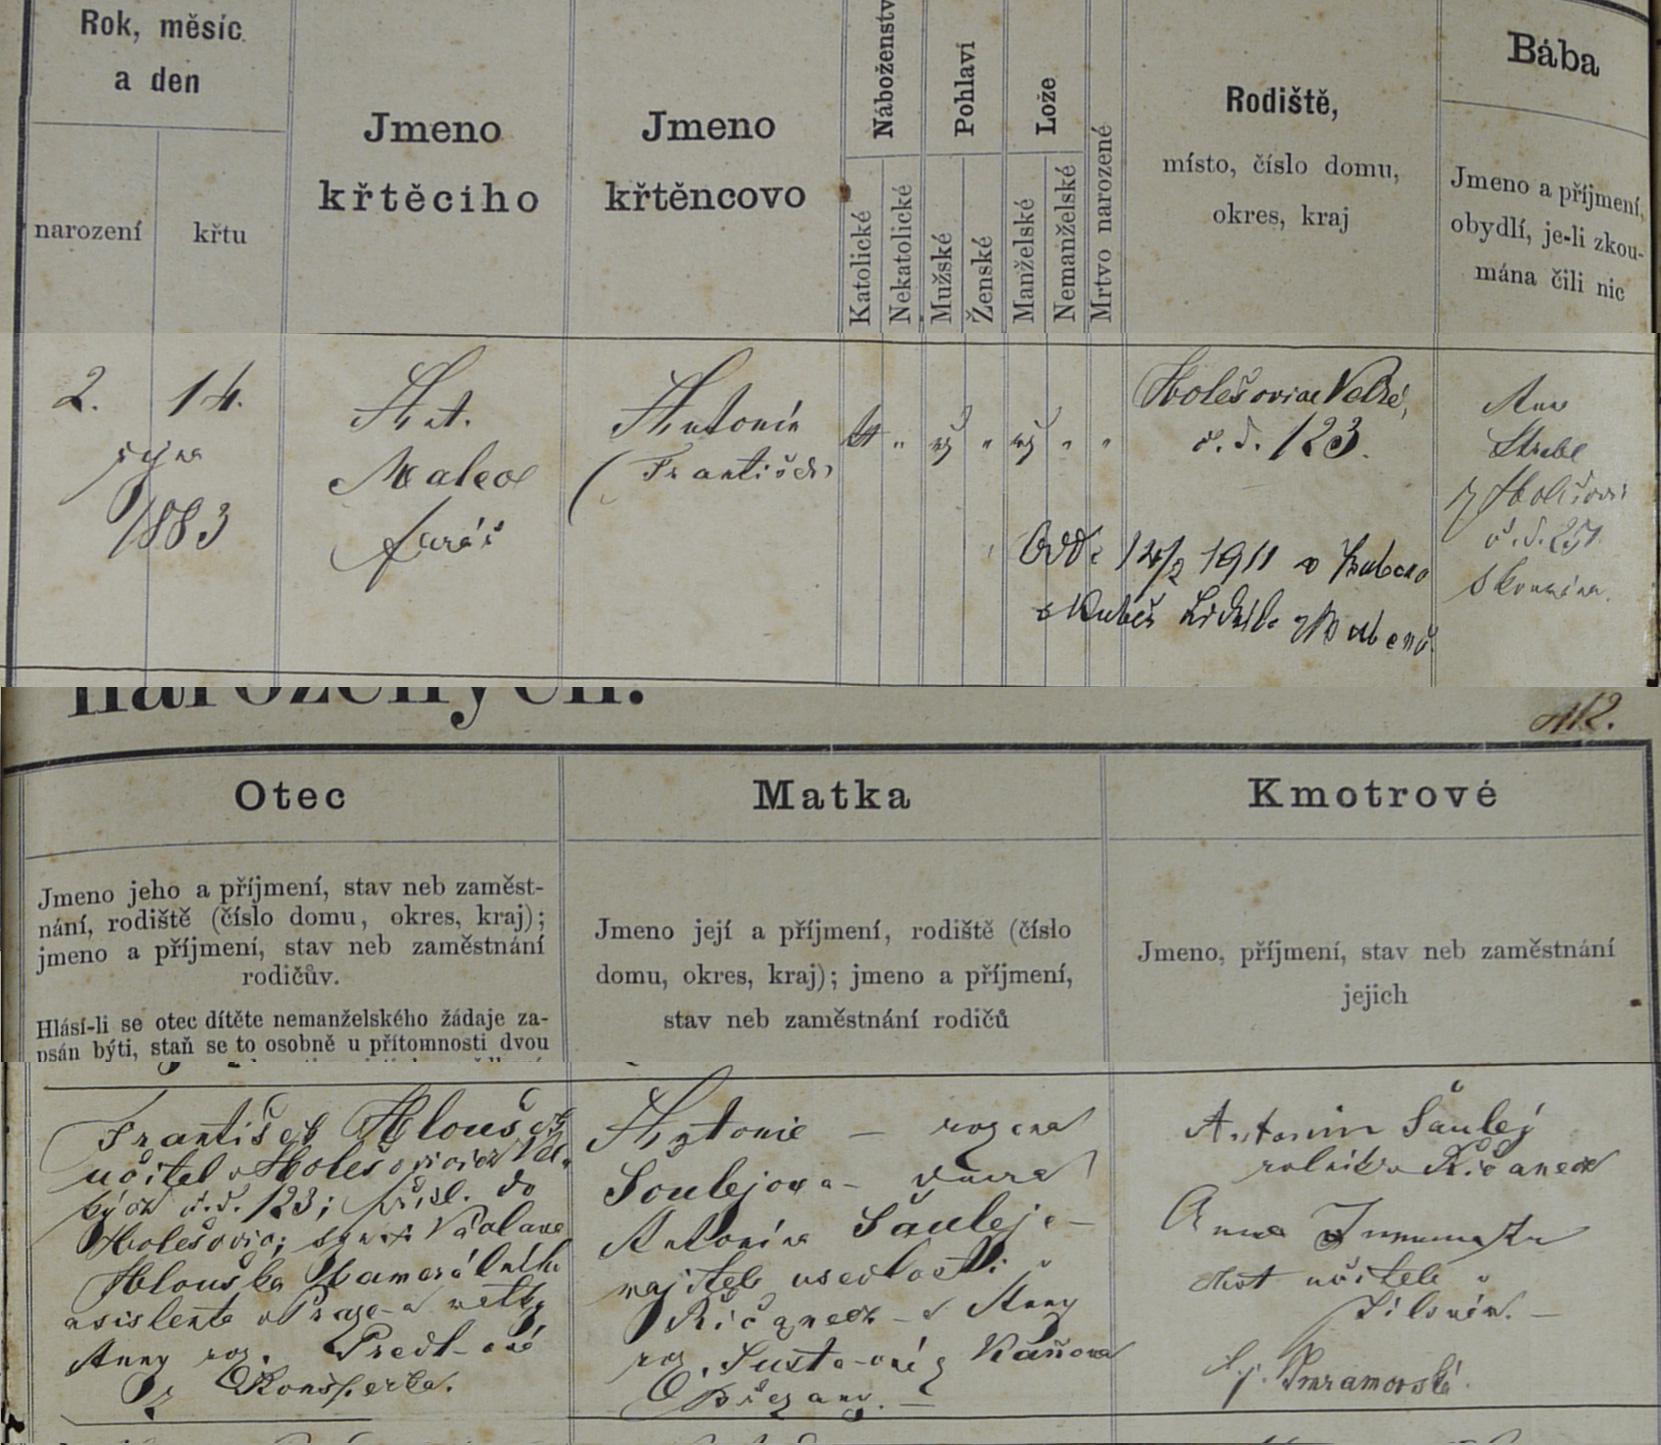 Rok, měsíc
a den
narození
křtu
Jmeno
křtěcího
Jmeno
křtěncovo
Náboženstv
Katolické
Nekatolické
Pohlaví
Mužské
Ženské
Lože
Manželské
Nemanželské
Mrtvo narozené
Rodiště,
místo, číslo domu,
okres, kraj
Bába
Jmeno a příjmení,
obydlí, je-li zkou-
mána čili nic
2. 14.
října
1883
Ant.
Malec
farář
Antonín
(František)
Holešovice Velké,
č. d. 123.
Odd. 1911 v Bubenč
s Kubeš Lidmila z Bubenč
Anna
z Holešovic
č. d.
Zkoumána.
narozených.
412.
Otec
Jmeno jeho a příjmení, stav neb zaměst-
nání, rodiště (číslo domu, okres, kraj);
jmeno a příjmení, stav neb zaměstnání
rodičův.
Hlásí-li se otec dítěte nemanželského žádaje za-
psán býti, staň se to osobně u přítomnosti dvou
Matka
Jmeno její a příjmení, rodiště (číslo
domu, okres, kraj); jmeno a příjmení,
stav neb zaměstnání rodičů
Kmotrové
Jmeno, příjmení, stav neb zaměstnání
jejich
František Hloušek
učitel v Holešovicích Vel-
kých č. d. 123; přísl. do
Holešovic; syn Václava
Hlouška kamerálního
asistenta v Praze a matky
Anny roz.
z
Antonie – rozená
Šoulejova – dcera
Antonína Šouleje –
majitele usedlosti v
Říčanech – a Anny
roz. z
Antonín Šoulej
rolník v Říčanech
Anna
choť učitele v